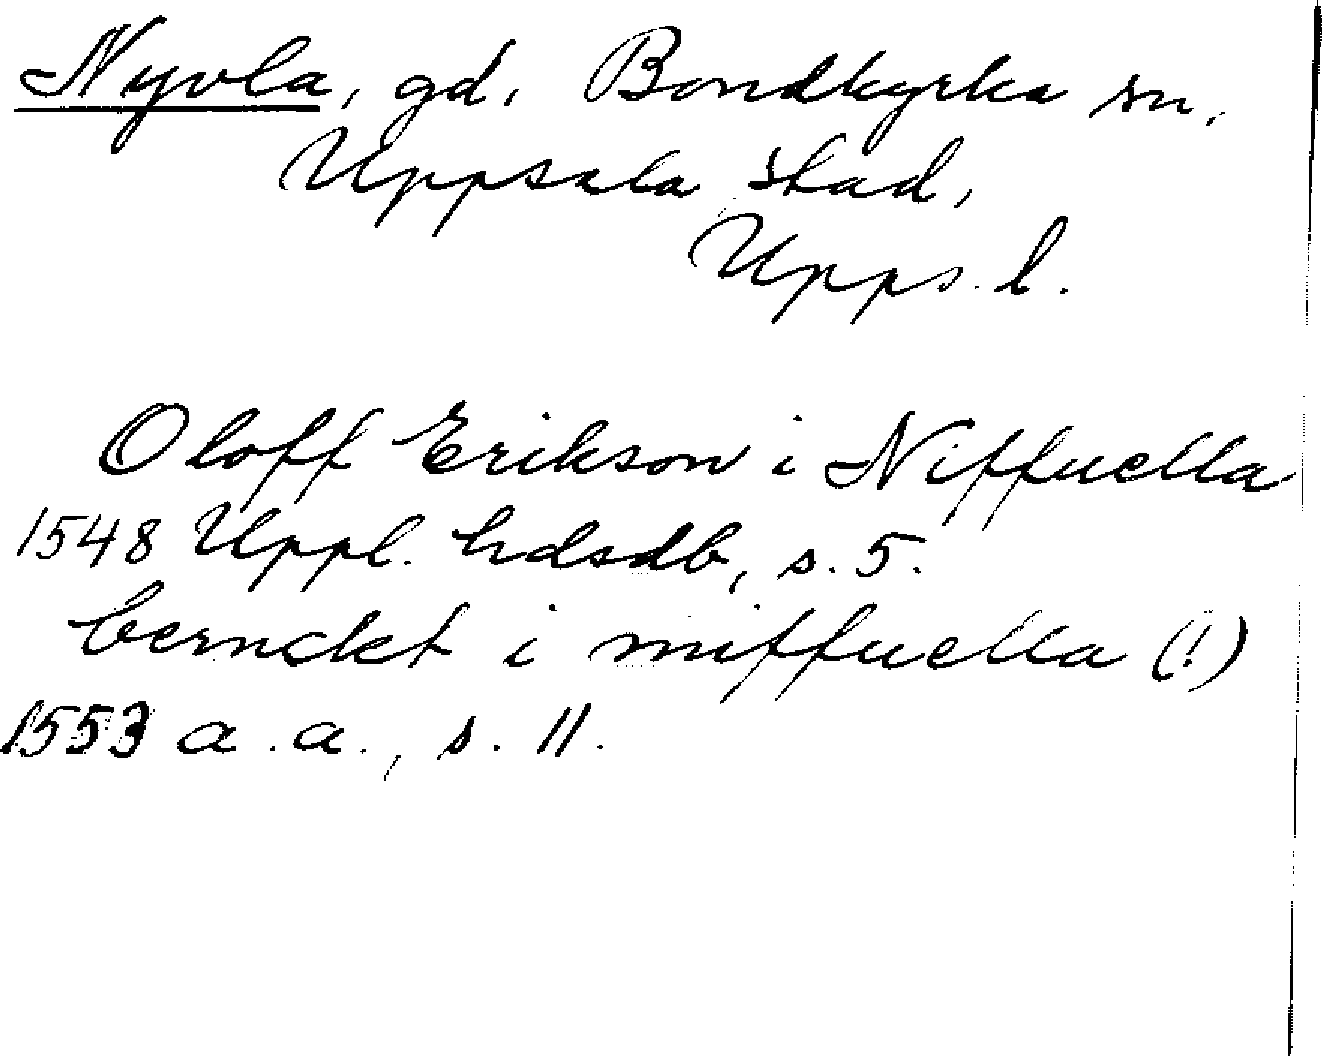 Nyvla, gd, Bondkyrka sn,
Uppsala stad,
Upps. l.
Oloff Erikson i Niffuella
1548 Uppl. hdsdb, s. 5.
berndet i miffuella (!)
1553 a.a., s. 11.